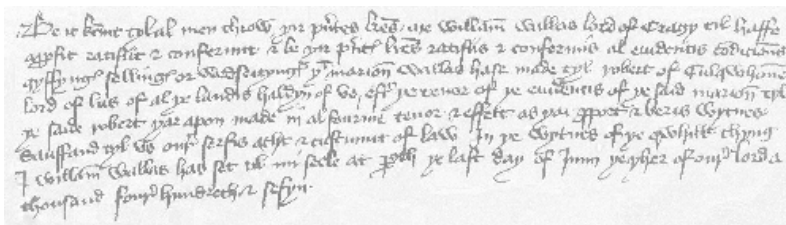 Be it kend tyl al men throw yir pntes lres me willam wallas lord of Cragy tyl haffe
appfit ratifiit & confermit & be yir pnte lres ratifiis & confermis al euidentis condicions
gyffyngs sellings or wedsettyngs yt marion wallas hafe made tyl robert of Culqwhone
lord of lus of al ye landis haldyn of vs eftr ye tenor of ye euidentis of ye said marion tyl
ye said robert yar apon made in al fourme tenor & effett as yai pport & beris wytnes
sauffand tyl vs our serfis acht & custumit of law In ye wytnes of ye qwhilk thyng
I willam wallas has set tyl mi sele at ye last day of Juni ye yher of our lord a
thousand four hundreth & sefyn